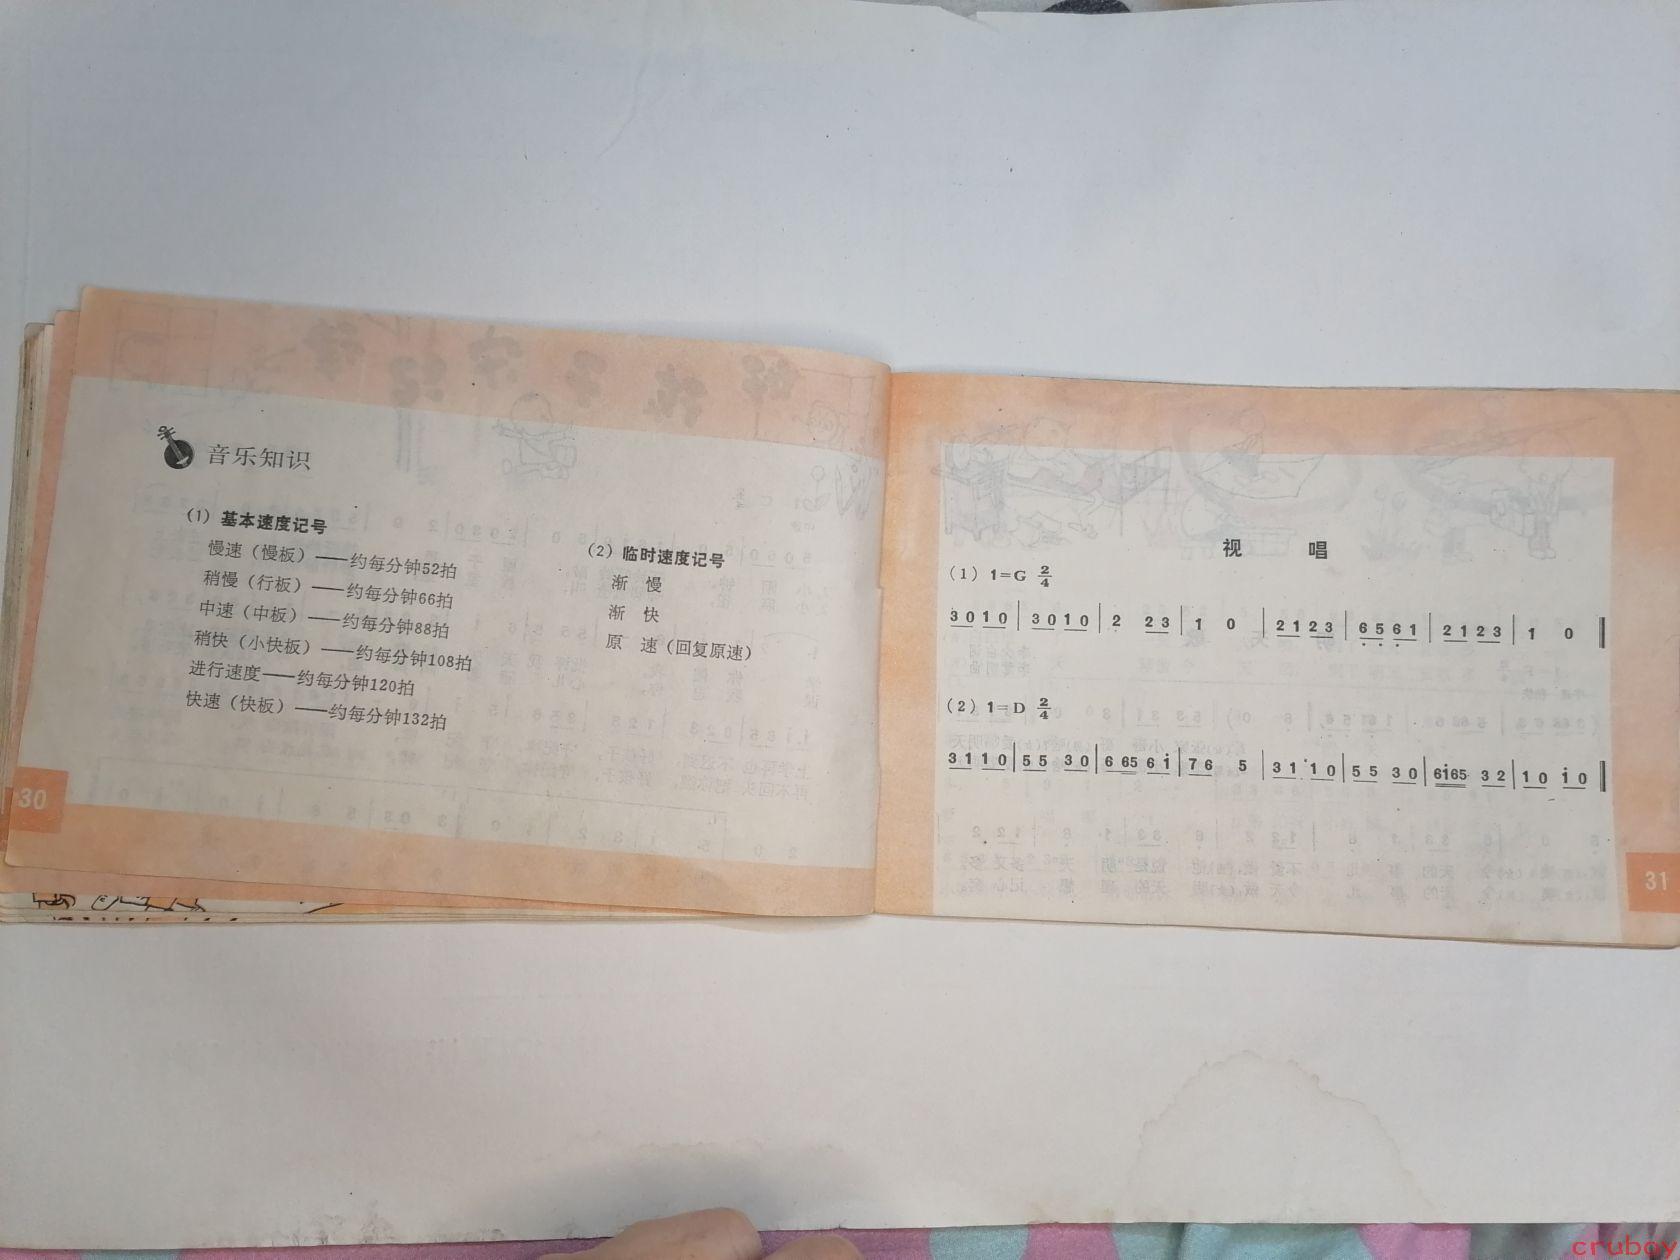 音乐知识
(1) 基本速度记号
慢速（慢板）——约每分钟52拍
稍慢（行板）——约每分钟66拍
中速（中板）——约每分钟88拍
稍快（小快板）——约每分钟108拍
进行速度——约每分钟120拍
快速（快板）——约每分钟132拍
(2) 临时速度记号
渐 慢
渐 快
原 速（回复原速）
30
视 唱
(1) 1=G 2/4
3 0 1 0 | 3 0 1 0 | 2 2 3 | 1 0 | 2 1 2 3 | 6̣ 5̣ 6̣ 1 | 2 1 2 3 | 1 0 ‖
(2) 1=D 2/4
3 1 1 0 | 5 5 3 0 | 6 65 6 i | 7 6 5 | 3 1 1 0 | 5 5 3 0 | 6i65 3 2 | 1 0 i 0 ‖
31
cruboy